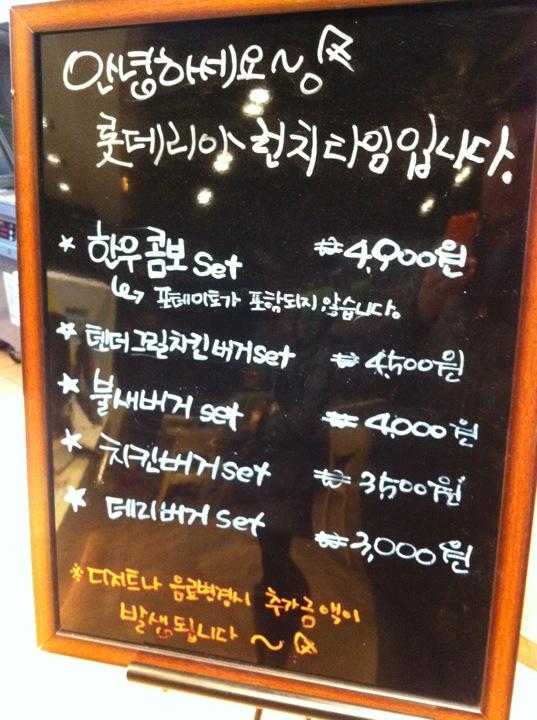 안녕하세요~
롯데리아 런치타임입니다.
* 한우콤보 Set ₩4,900원
↳ 포테이토가 포함되지 않습니다.
* 텐더그릴치킨버거 set ₩4,500원
* 불새버거 set ₩4,000원
* 치킨버거 set ₩3,500원
* 데리버거 set ₩3,000원
※ 디저트나 음료변경시 추가금액이
발생됩니다~